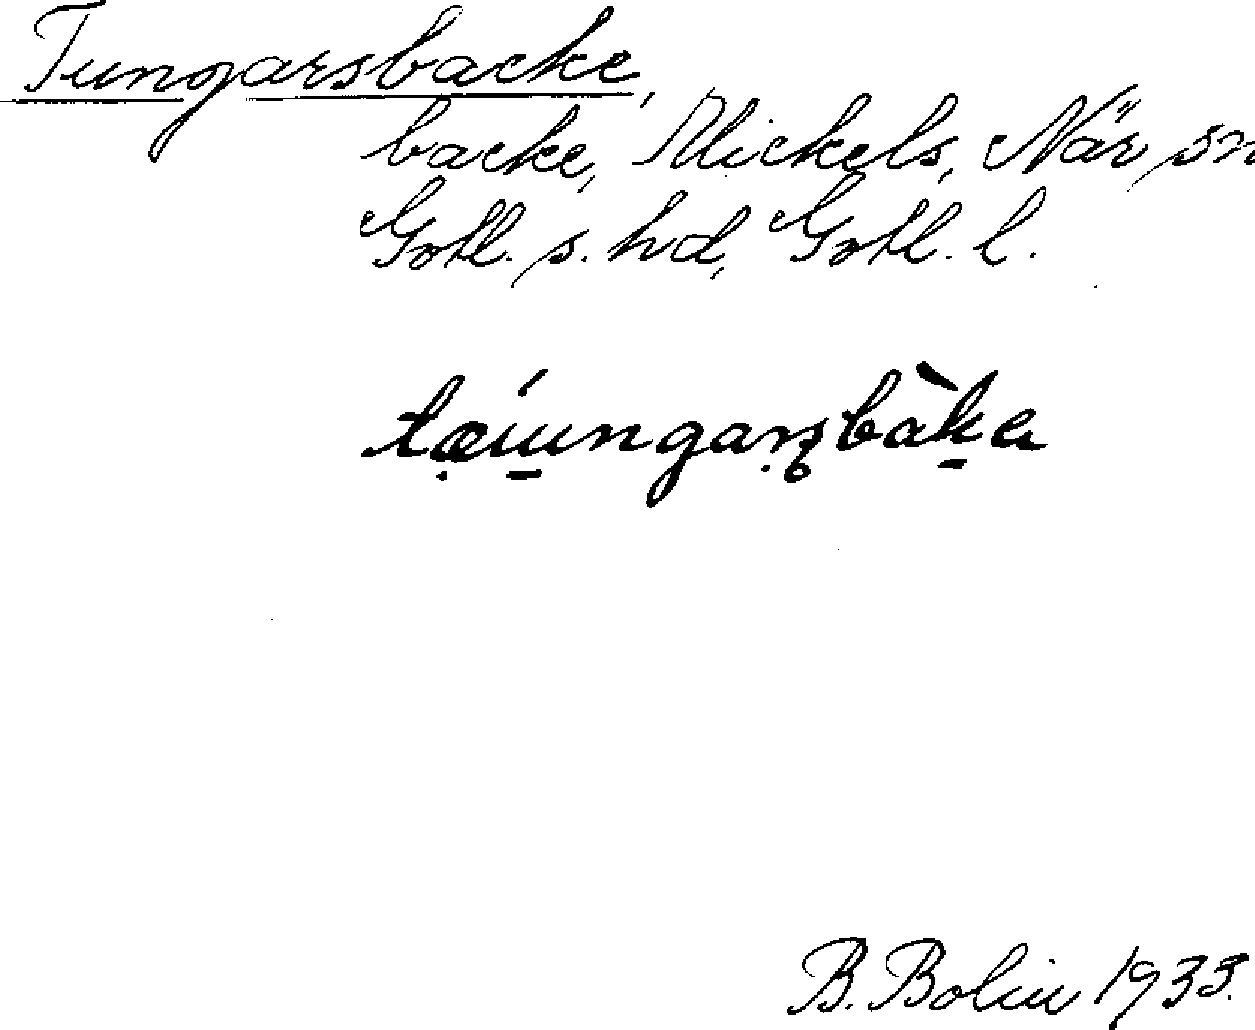 Tungarsbacke,
backe, Mickels, När sn
Gotl. s. hd, Gotl. l.
B. Bolin 1933.